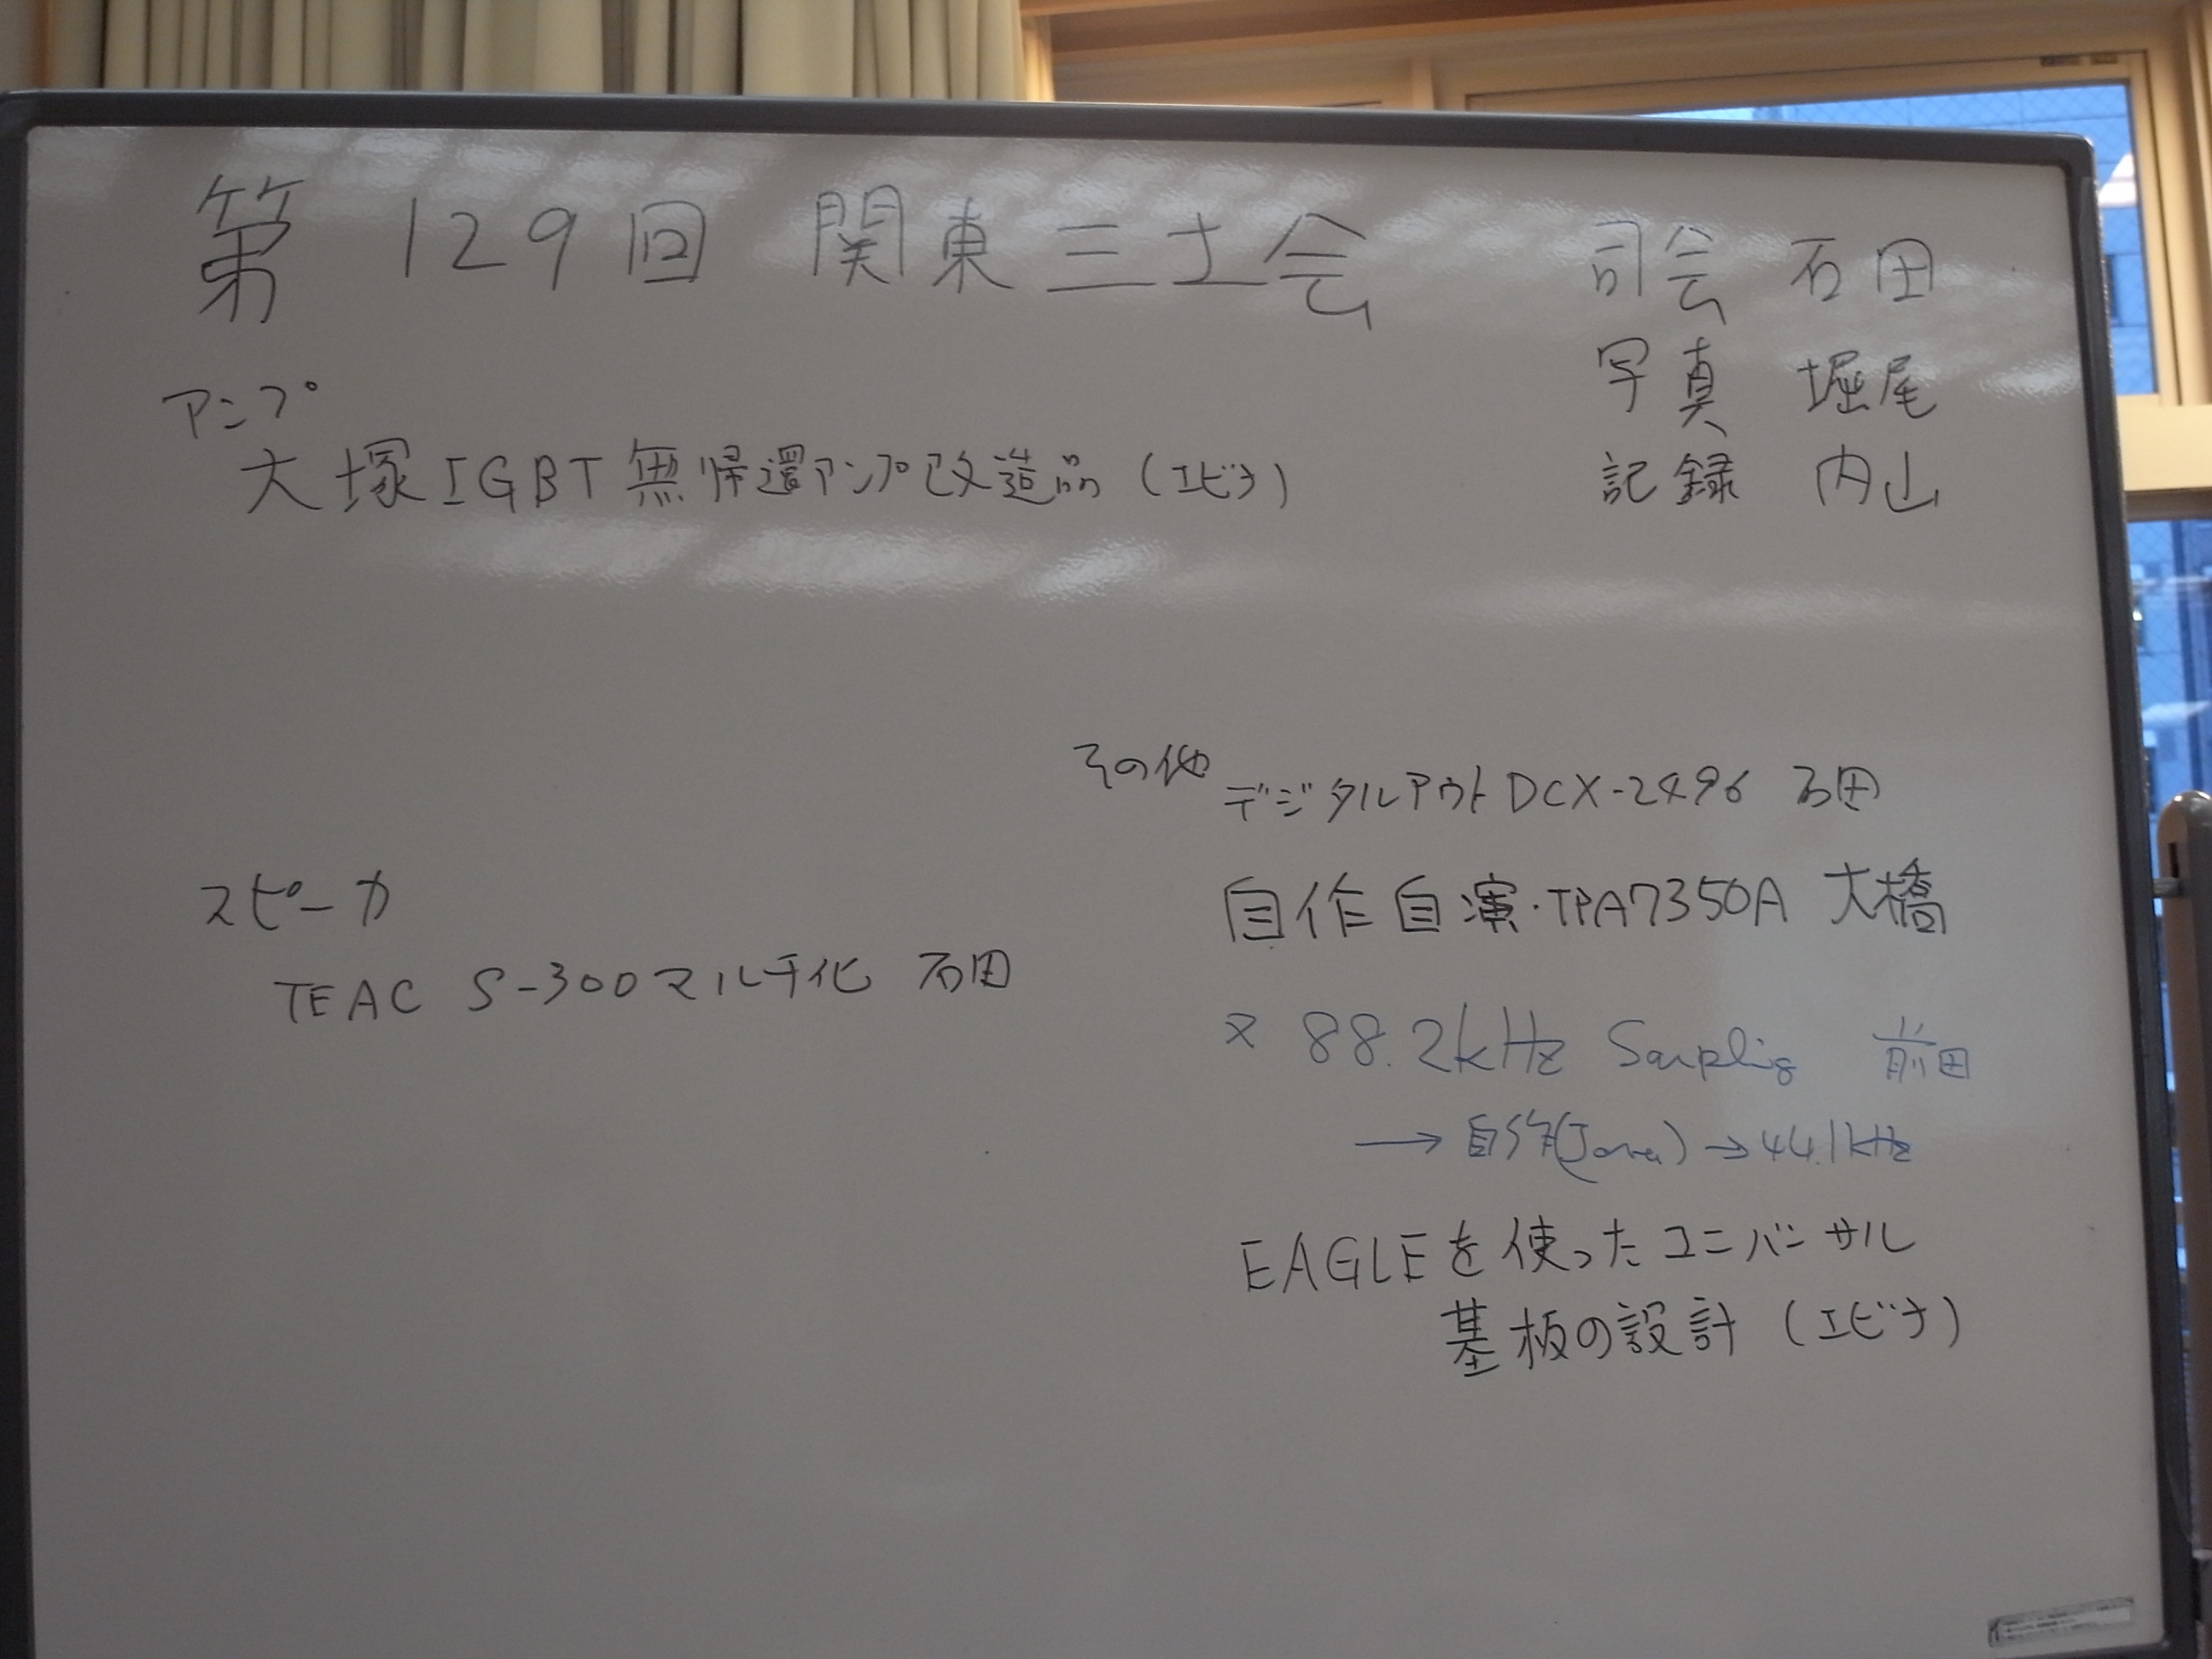 第129回 関東三土会
司会 石田
写真 堀尾
記録 内山
アンプ
大塚IGBT無帰還アンプ改造品(エビナ)
スピーカ
TEAC S-300マルチ化 石田
その他
デジタルアウトDCX-2496 石田
自作自演・TPA7350A 大橋
× 88.2kHz Sampling 前田
→ 自作(Java) → 44.1kHz
EAGLEを使ったユニバーサル
基板の設計(エビナ)